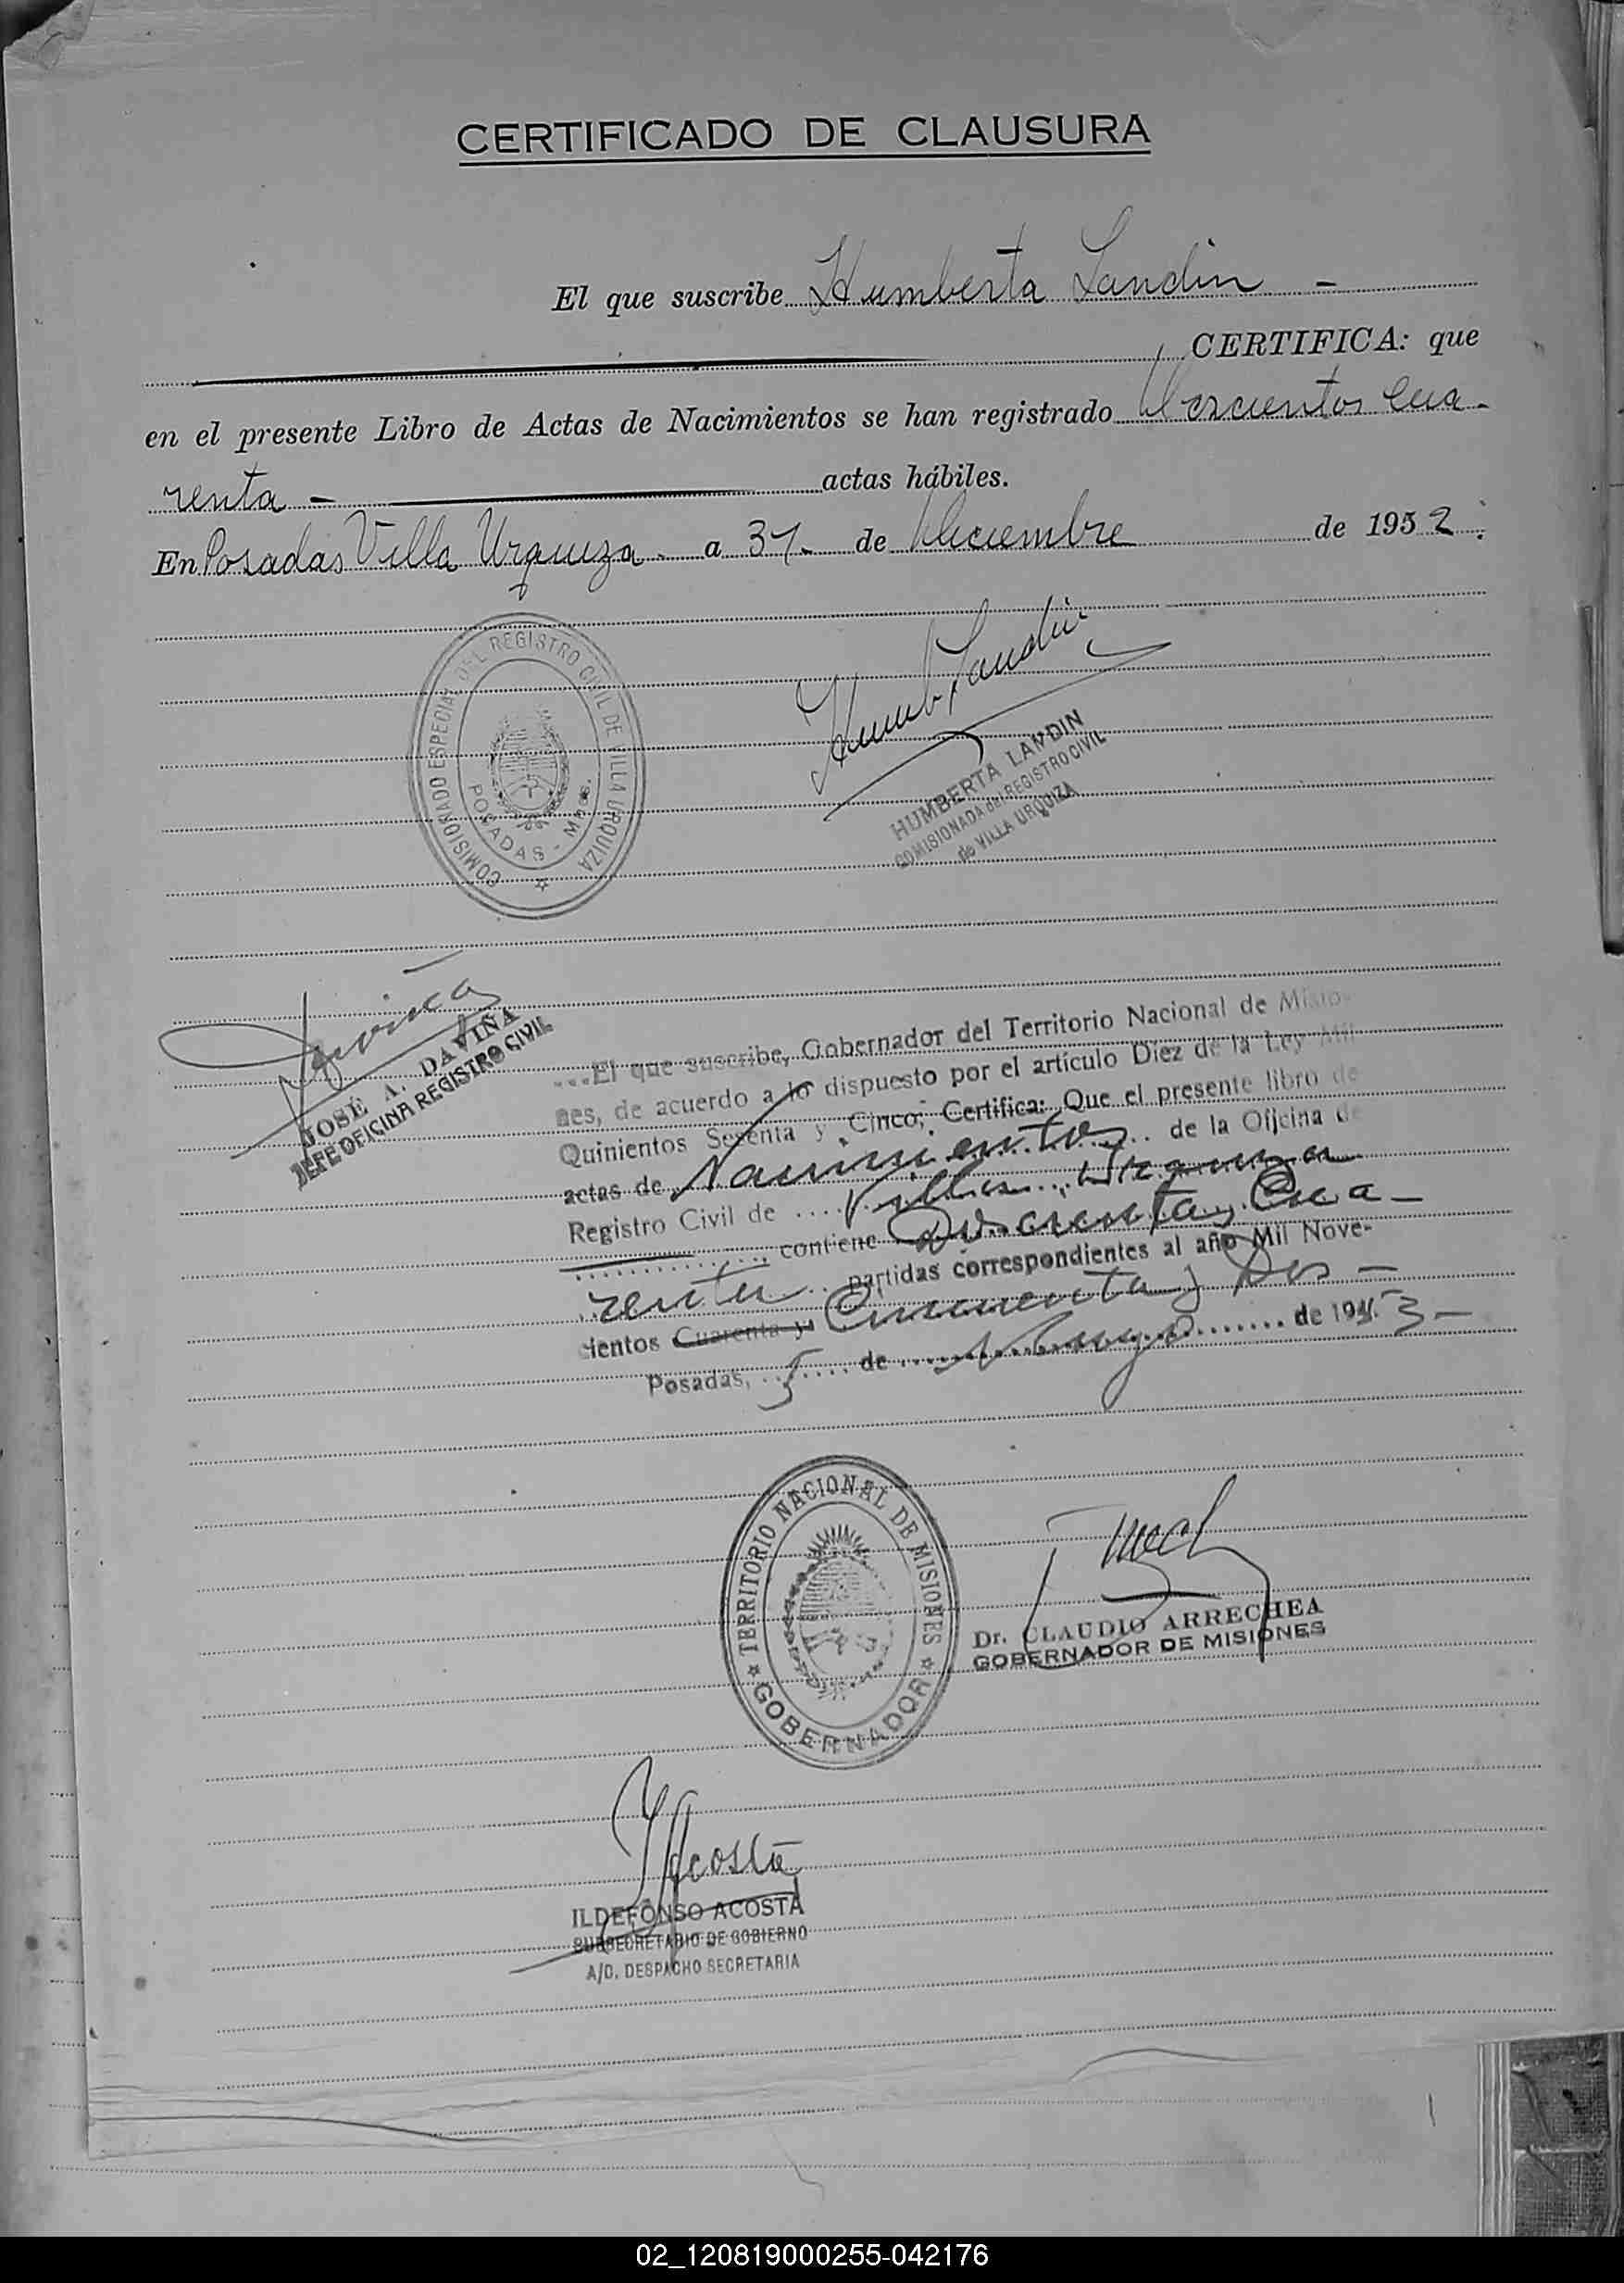 CERTIFICADO DE CLAUSURA
El que suscribe Humberta Landin -
CERTIFICA: que
en el presente Libro de Actas de Nacimientos se han registrado Doscientos cua-
renta - actas hábiles.
En Posadas Villa Urquiza - a 31 - de Diciembre de 1952 .
COMISIONADO ESPECIAL DEL REGISTRO CIVIL DE VILLA URQUIZA
POSADAS - Mnes.
Humb. Landin
HUMBERTA LANDIN
COMISIONADA del REGISTRO CIVIL
de VILLA URQUIZA
JOSÉ A. DAVIÑA
JEFE OFICINA REGISTRO CIVIL
...El que suscribe, Gobernador del Territorio Nacional de Misio-
nes, de acuerdo a lo dispuesto por el artículo Diez de la Ley Mil
Quinientos Sesenta y Cinco; Certifica: Que el presente libro de
actas de Nacimientos de la Oficina de
Registro Civil de Villa Urquiza
contiene Doscientas Cua-
renta partidas correspondientes al año Mil Nove-
cientos Cuarenta y Cincuenta y Dos -
Posadas, 5 de Mayo de 1953 -
TERRITORIO NACIONAL DE MISIONES
GOBERNADOR
Dr. CLAUDIO ARRECHEA
GOBERNADOR DE MISIONES
Acosta
ILDEFONSO ACOSTA
SUBSECRETARIO DE GOBIERNO
A/C. DESPACHO SECRETARIA
02_120819000255-042176